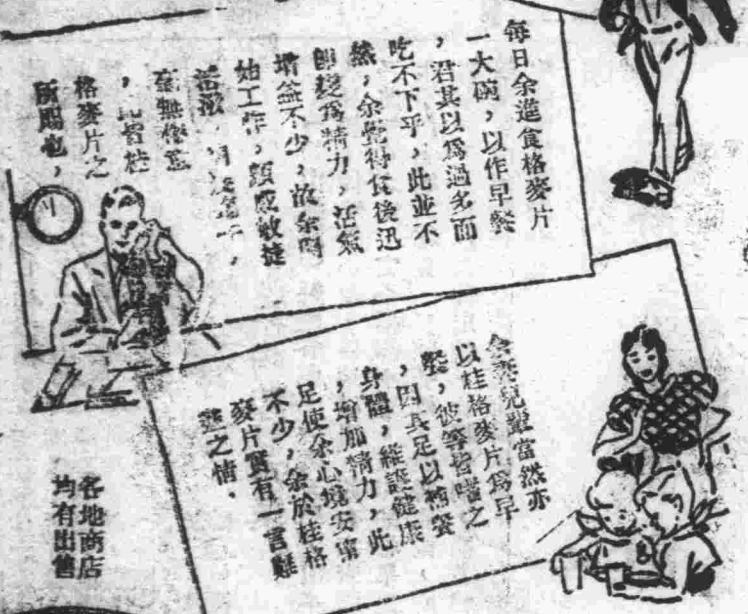 每日余進食格麥片
一大碗，以作早餐
，君其以爲過多而
吃不下乎，此並不
然，余覺得食後迅
卽變爲精力，活氣
增益不少，故余開
始工作，頗感敏捷
活潑，
毫無倦意
，此皆桂
格麥片之
所賜也，
余等兒輩當然亦
以桂格麥片爲早
餐，彼等皆嗜之
，因其足以補養
身體，維護健康
，增加精力，此
足使余心境安寧
不少，余於桂格
麥片實有一言難
盡之情。
各地商店
均有出售